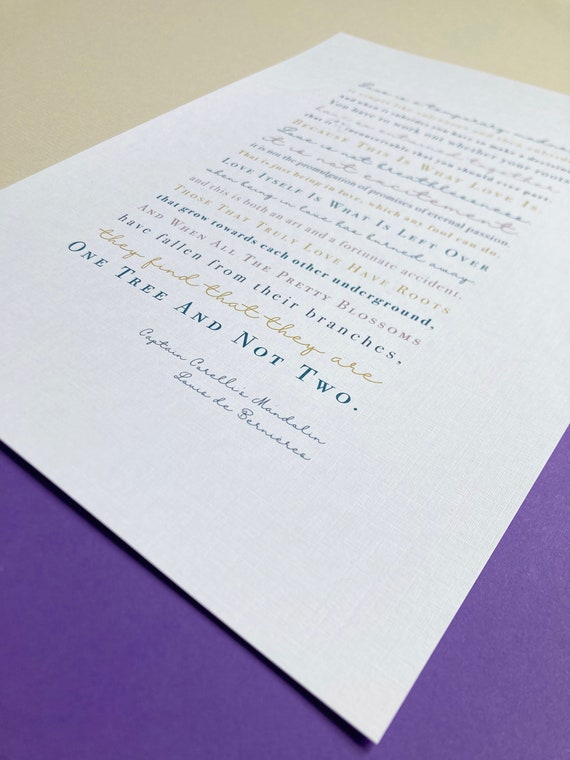 Love is a temporary madness
and when it subsides you have to make a decision.
You have to work out whether your roots
that it is inconceivable that you should ever part.
Because This Is What Love Is
Love is not breathlessness
it is not excitement
it is not the promulgation of promises of eternal passion.
That is just being in love, which any fool can do.
Love Itself Is What Is Left Over
when being in love has burned away
and this is both an art and a fortunate accident.
Those That Truly Love Have Roots
that grow towards each other underground,
And When All The Pretty Blossoms
have fallen from their branches,
they find that they are
One Tree And Not Two.
Captain Corelli's Mandolin
Louis de Bernières